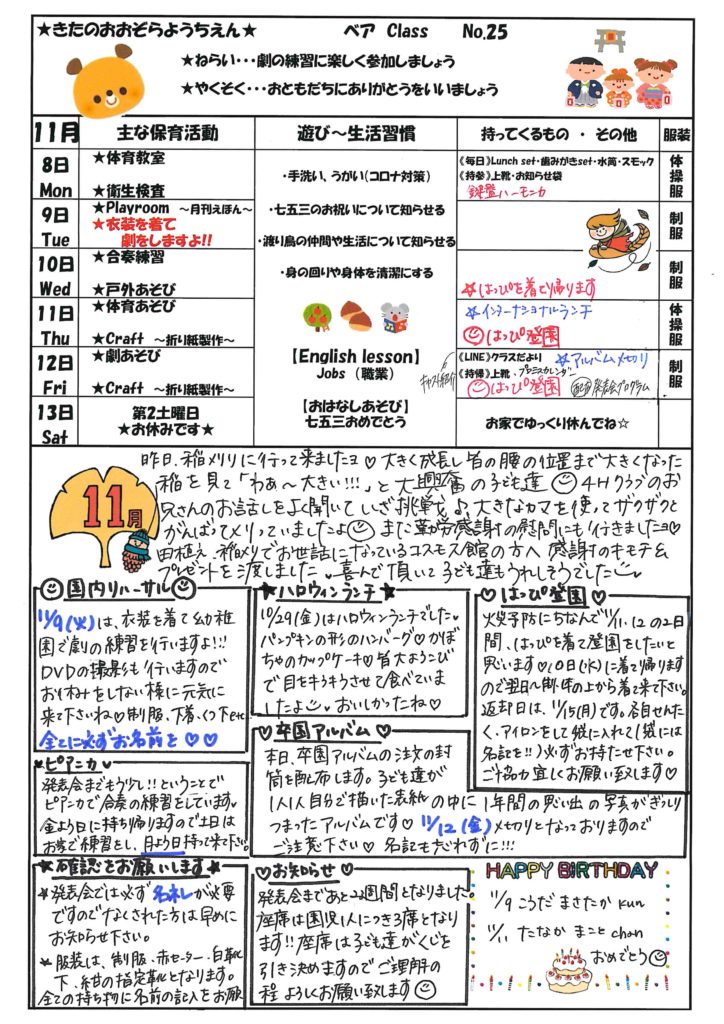 ★きたのおおぞらようちえん★ ベア Class No.25
★ねらい・・・劇の練習に楽しく参加しましょう
★やくそく・・・おともだちにありがとうをいいましょう
11月 主な保育活動 遊び～生活習慣 持ってくるもの ・ その他 服装
8日 Mon
★体育教室
★衛生検査
《毎日》Lunch set・歯みがきset・水筒・スモック
《持参》上靴・お知らせ袋
鍵盤ハーモニカ
体操服
9日 Tue
★Playroom ～月刊えほん～
★衣装を着て
劇をしますよ!!
制服
10日 Wed
★合奏練習
★戸外あそび
☆はっぴを着て帰ります
制服
11日 Thu
★体育あそび
★Craft ～折り紙製作～
☆インターナショナルランチ
はっぴ登園
体操服
12日 Fri
★劇あそび
★Craft ～折り紙製作～
《LINE》クラスだより ☆アルバム〆切り
《持帰》上靴・プロミスカレンダー
はっぴ登園 配布 発表会プログラム
制服
13日 Sat
第2土曜日
★お休みです★
お家でゆっくり休んでね☆
・手洗い、うがい(コロナ対策)
・七五三のお祝いについて知らせる
・渡り鳥の仲間や生活について知らせる
・身の回りや身体を清潔にする
【English lesson】
Jobs (職業)
キャスト紹介
【おはなしあそび】
七五三おめでとう
11月
昨日、稲刈りに行って来ましたヨ♡大きく成長し皆の腰の位置まで大きくなった
稲を見て「わぁ～大きい!!!」と大興奮の子ども達 4Hクラブのお
兄さんのお話しをよく聞いていざ挑戦♪大きなカマを使ってザクザクと
がんばって刈りっていましたよ また勤労感謝の慰問にも行きましたヨ♡
田植え、稲刈りでお世話になっているコスモス館の方へ感謝のキモチ&
プレゼントを渡しました♥喜んで頂いて子ども達もうれしそうでした
園内リハーサル
11/9(火)は、衣装を着て幼稚
園で劇の練習を行いますよ!!!
DVDの撮影も行いますので
お休みをしない様に元気に
来て下さいね♡制服、下着、くつ下etc
全てに必ずお名前を♡♡
ハロウィンランチ
10/29(金)はハロウィンランチでした♥
パンプキンの形のハンバーグ♡かぼ
ちゃのカップケーキ♡皆大よろこび
で目をキラキラさせて食べていま
したよ おいしかったね♡
♡はっぴ登園♡
火災予防にちなんで11/11.12の2日
間、はっぴを着て登園をしたいと
思います♡10日(水)に着て帰ります
ので翌日～制・体の上から着て来て下さい。
返却日は、11/15(月)です。各自せんた
く、アイロンをして袋に入れて(袋には
名記を!!)必ずお持た下さい。
ご協力宜しくお願い致します
ピアニカ♡
発表会までもう少し!!ということで
ピアニカで合奏の練習をしています♥
金よう日に持ち帰りますので土日は
お家で練習をし、月よう日持って来て下さい。
♡卒園アルバム
本日、卒園アルバムの注文の封
筒を配布します。子ども達が
1人1人自分で描いた表紙の中に1年間の思い出の写真がぎっしり
つまったアルバムです♡11/12(金)〆切りとなっておりますので
ご注意下さい♡ 名記も忘れずに!!!
★確認をお願いします★
★発表会では必ず名札が必要
ですのでなくされた方は早めに
お知らせ下さい。
★服装は、制服・赤セーター・白靴
下、紺の指定靴となります。
全ての持ち物に名前の記入をお願
♡お知らせ♡
発表会まであと2週間となりました♥
座席は園児1人につき3席となり
ます!!座席は子ども達がくじを
引き決めますのでご理解の
程よろしくお願い致します
HAPPY BIRTHDAY
11/9 こうだ まさたか kun
11/11 たなか まこと chan
おめでとう